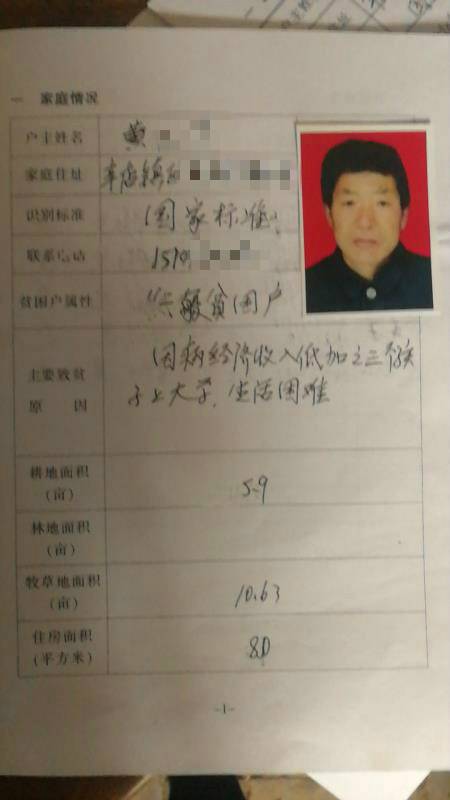 一 家庭情况
户主姓名 黄
家庭住址 车店镇
识别标准 国家标准
联系电话 1519
贫困户属性 一般贫困户
主要致贫
原 因
因病经济收入低加之三个孩
子上大学，生活困难
耕地面积
（亩）
5.9
林地面积
（亩）
牧草地面积
（亩）
10.63
住房面积
（平方米）
80
-1-